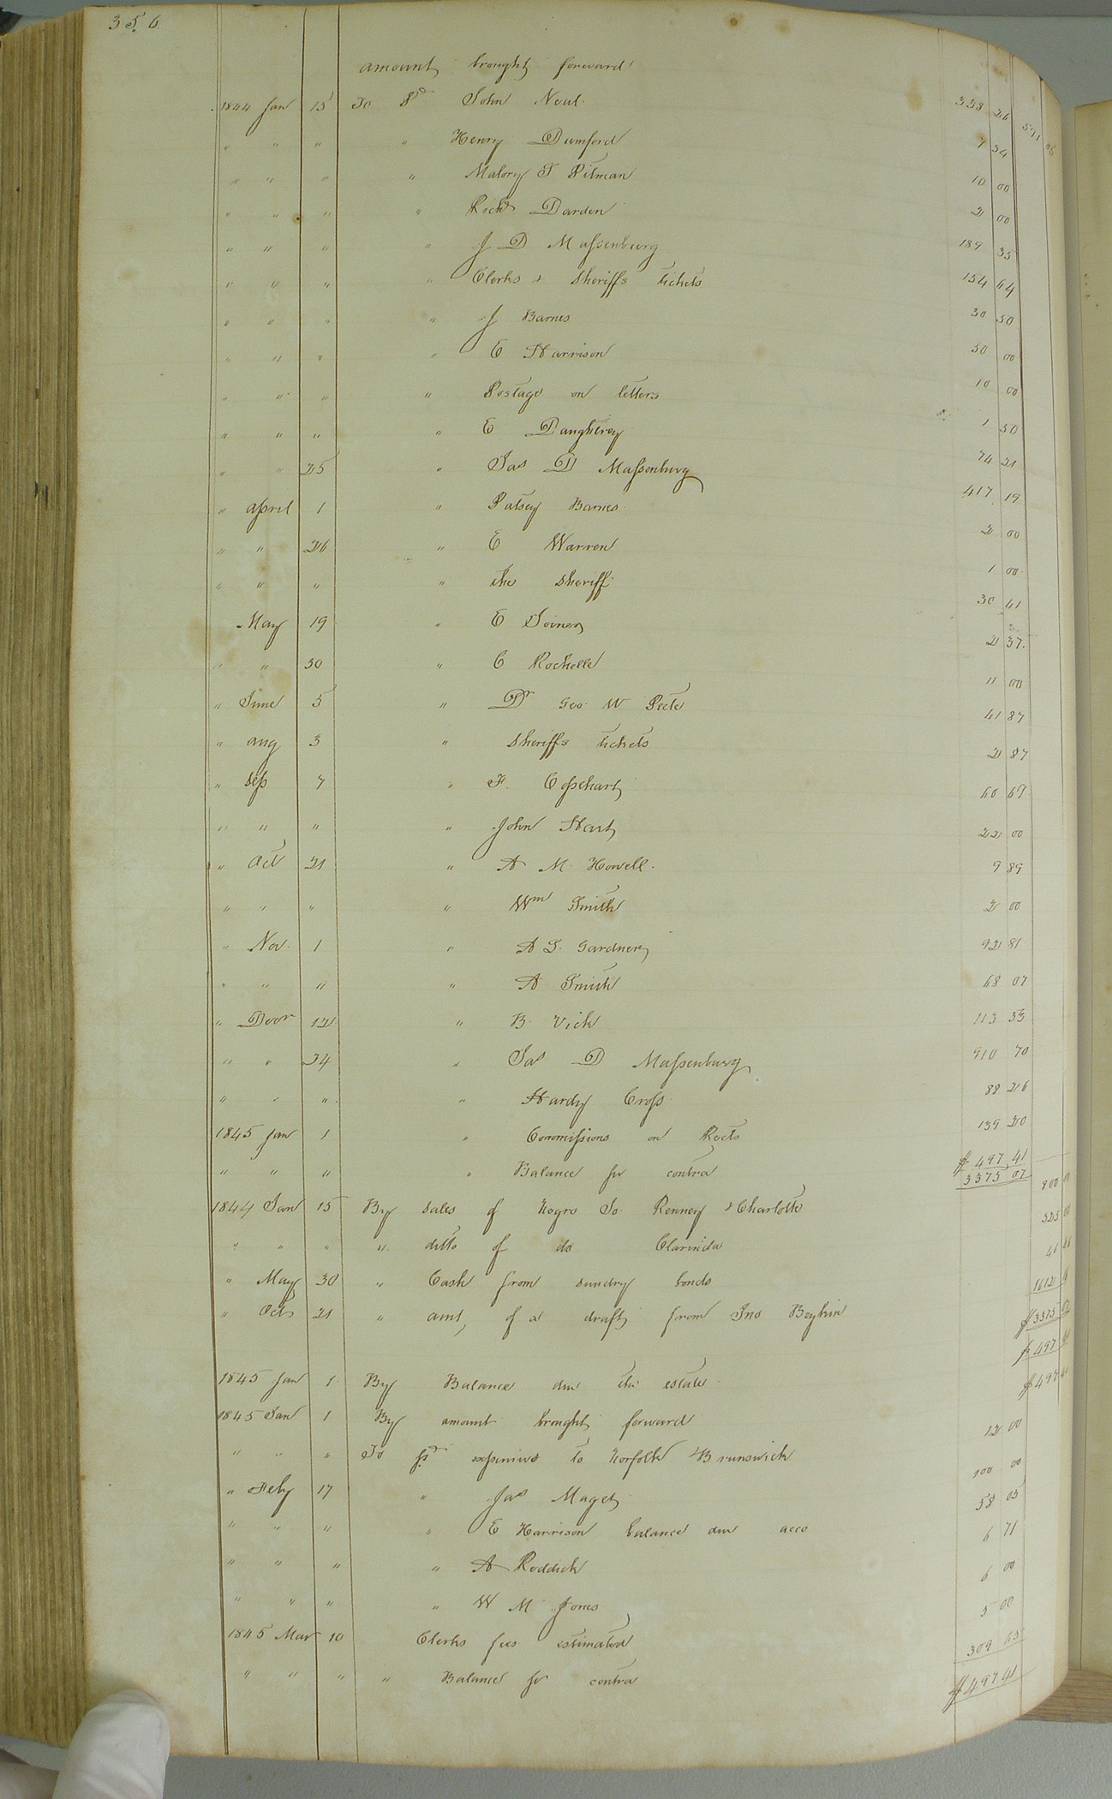 356
amount brought forward 591 06
1844 Jan 15 To Pd John Neul 338 26
" " " " Henry Dumford 7 34
" " " " Malory T Pitman 10 00
" " " " Richd Darden 2 00
" " " " J D Massenburg 189 35
" " " " Clerks & Sheriffs tickets 154 64
" " " " J Barnes 30 50
" " " " E Harrison 50 00
" " " " Postage on letters 10 00
" " " " E Daughtrey 1 50
" " 25 " Jas D Massenburg 74 21
" April 1 " Patsey Barnes 417 19
" " 26 " E Warren 2 00
" " " " the Sheriff 1 00
May 19 " E Joiner 30 41
" " 30 " C Rochelle 2 37
" June 5 " Dr Geo W Peete 11 00
" Aug 3 " Sheriffs tickets 41 87
" Sep 7 " F. Copehart 2 87
" " " " John Hart 60 69
" Oct 21 " A M Howell 22 00
" " " " Wm Smith 9 89
" Nov 1 " A S Gardner 2 00
" " " " A Smith 92 81
" Decr 12 " B Vick 68 07
" " 24 " Jas D Massenburg 113 33
" " " " Hardy Cross 910 70
1845 Jan 1 " Commissions on Rects 88 26
" " " " Balance pr contra 139 20
$ 497 41
3375 07
1844 Jan 15 By sales of Negro Jo Renney & Charlotte 800 00
" " " " ditto of do Clarinda 525 00
" May 30 " Cash from sundry bonds 41
" Oct 21 " amt, of a draft from Jno Boykin 1612
$3375 07
$ 497 41
1845 Jan 1 By Balance due the estate $497 41
1845 Jan 1 By amount brought forward
" " " To pd expenses to Norfolk & Brunswick 12 00
" Feby 17 " Jas Maget 100 00
" " " " E Harrison balance due acco 58 05
" " " " A Reddick 6 71
" " " " W M Jones 6 00
1845 Mar 10 Clerks fees estimated 5 00
" " " " Balance pr contra 309 65
$497 41